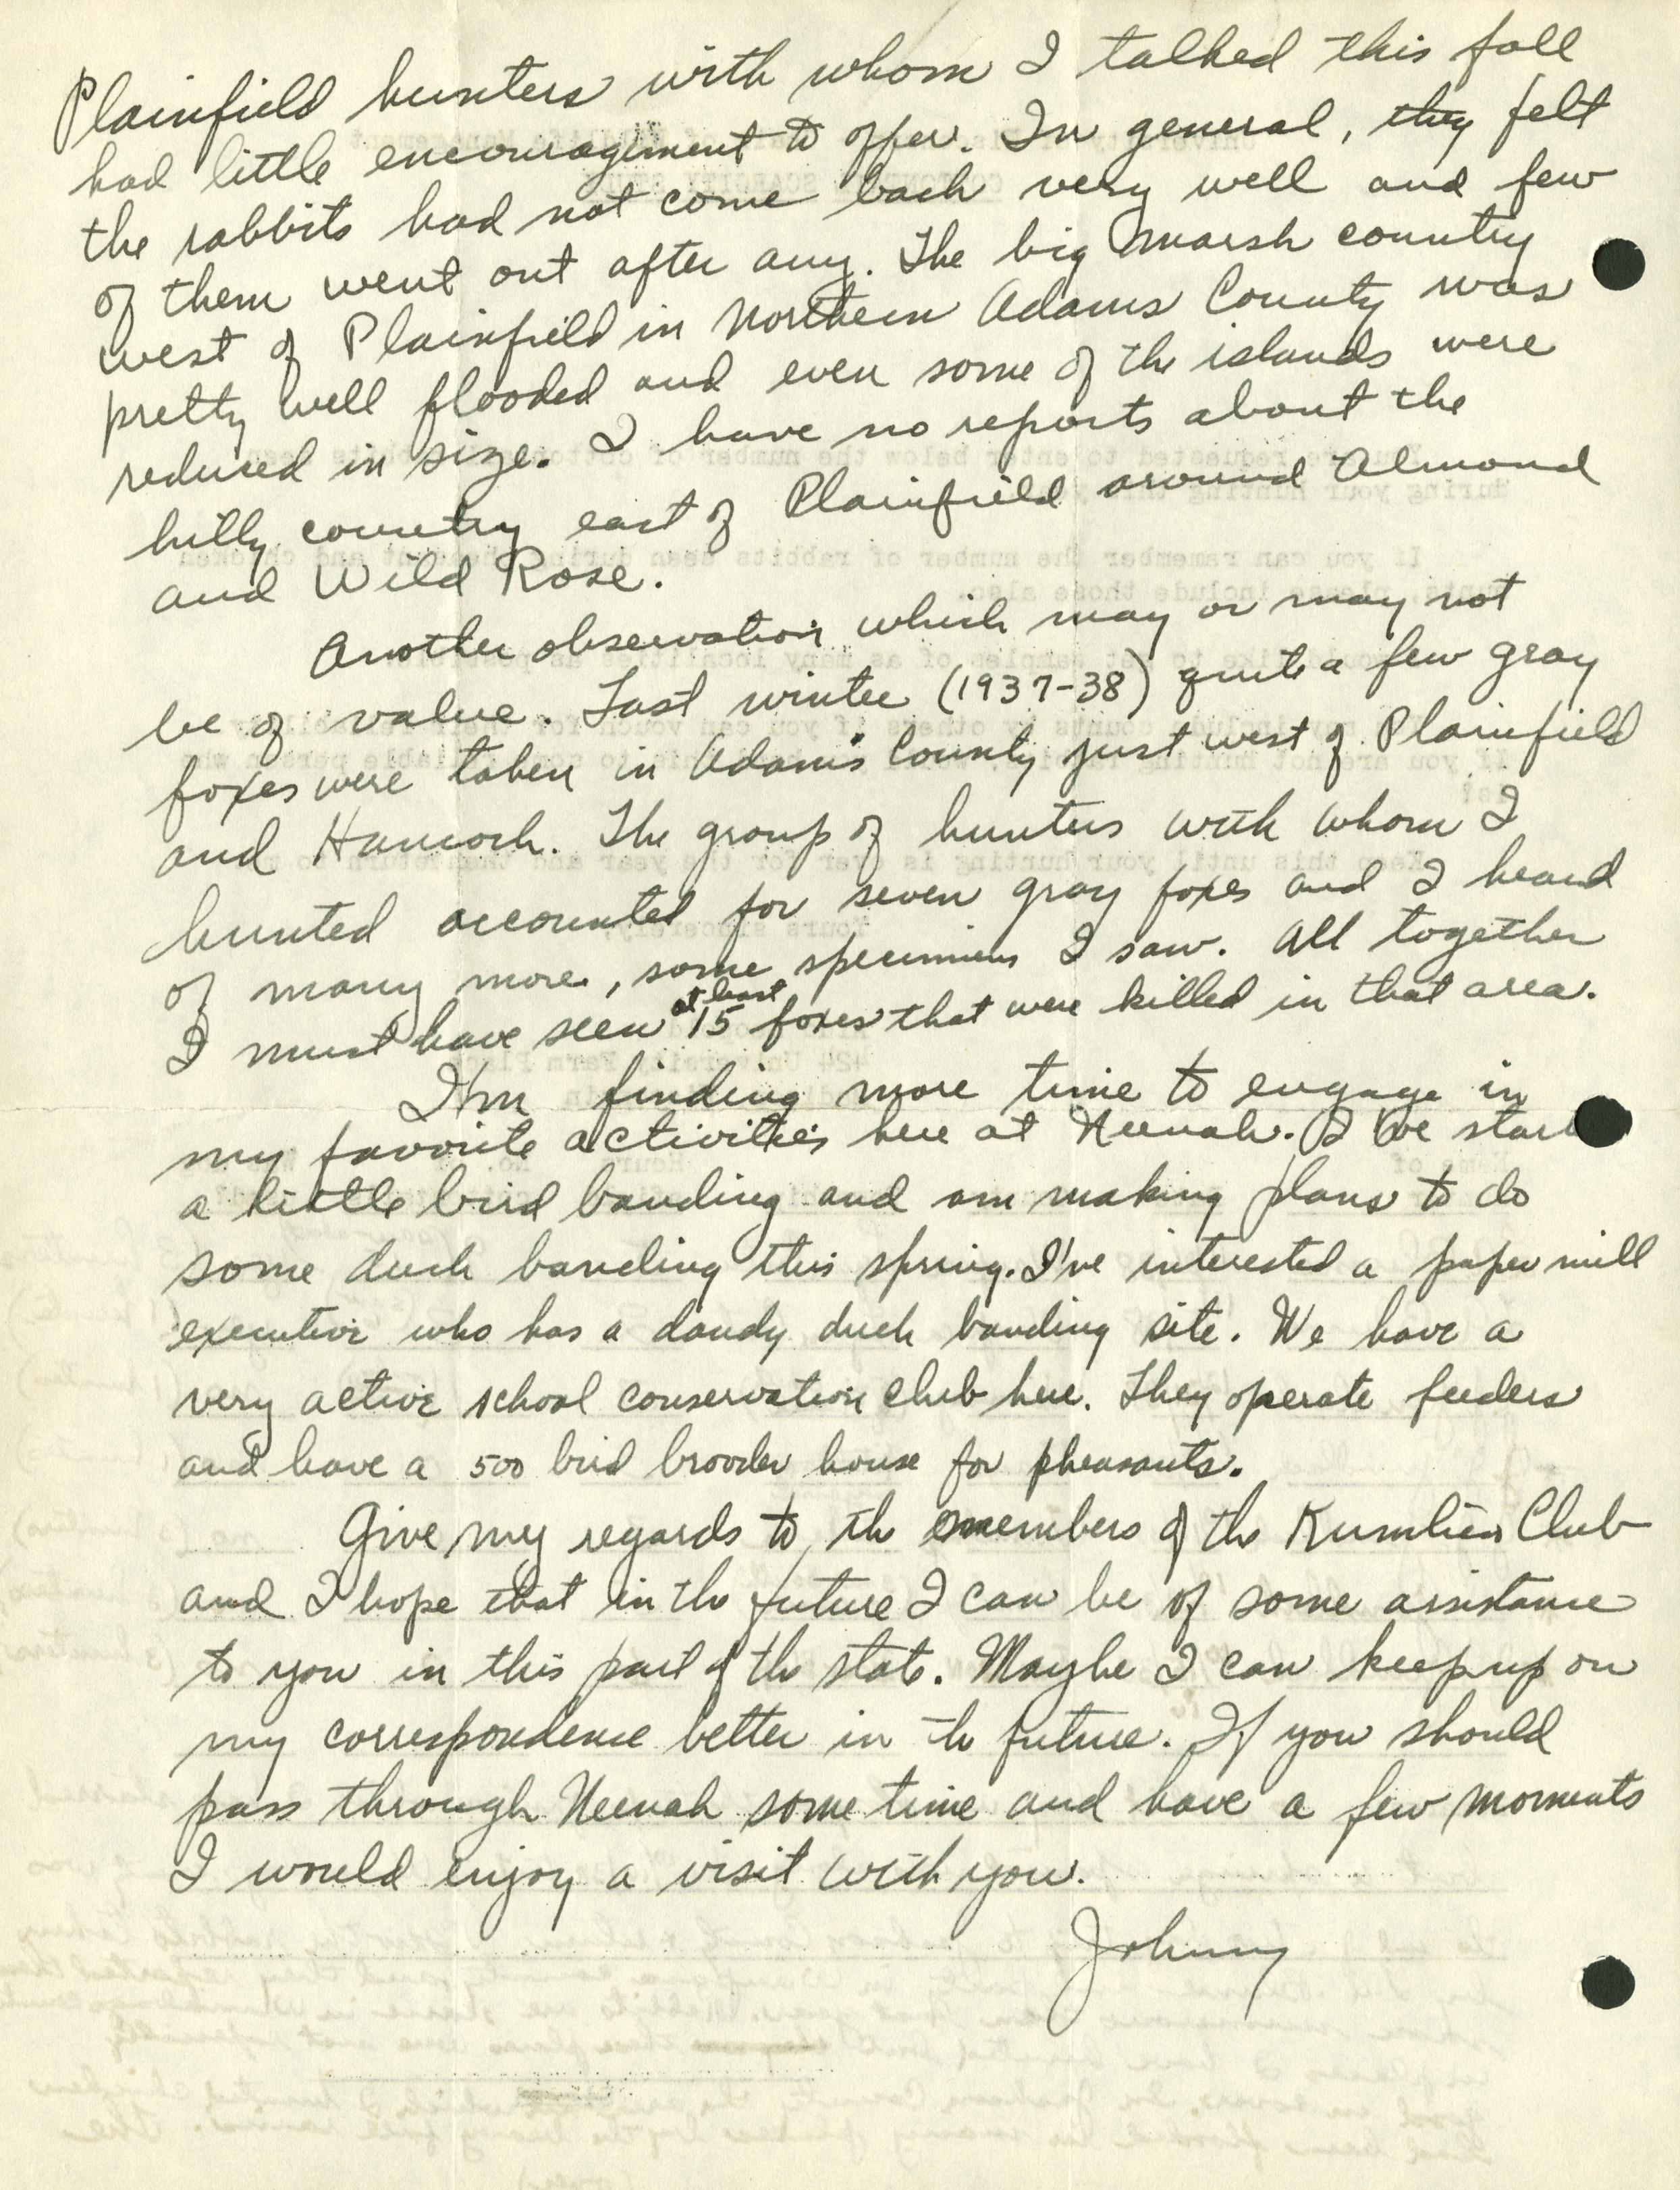 Plainfield hunters with whom I talked this fall
had little encouragement to offer. In general, they felt
the rabbits had not come back very well and few
of them went out after any. The big marsh country
west of Plainfield in Northern Adams County was
pretty well flooded and even some of the islands were
reduced in size. I have no reports about the
hilly country east of Plainfield around Almond
and Wild Rose.
Another observation which may or may not
be of value. Last winter (1937-38) quite a few gray
foxes were taken in Adams County just west of Plainfield
and Hancock. The group of hunters with whom I
hunted accounted for seven gray foxes and I heard
of many more, some specimens I saw. All together
I must have seen at least 15 foxes that were killed in that area.
I'm finding more time to engage in
my favorite activities here at Neenah. I've
a little bird banding and am making plans to do
some duck banding this spring. I've interested a paper mill
executive who has a dandy duck banding site. We have a
very active school conservation club here. They operate feeders
and have a 500 bird brooder house for pheasants.
Give my regards to the members of the Kumlien Club
and I hope that in the future I can be of some assistance
to you in this part of the state. Maybe I can keep up on
my correspondence better in the future. If you should
pass through Neenah some time and have a few moments
I would enjoy a visit with you.
Johnny